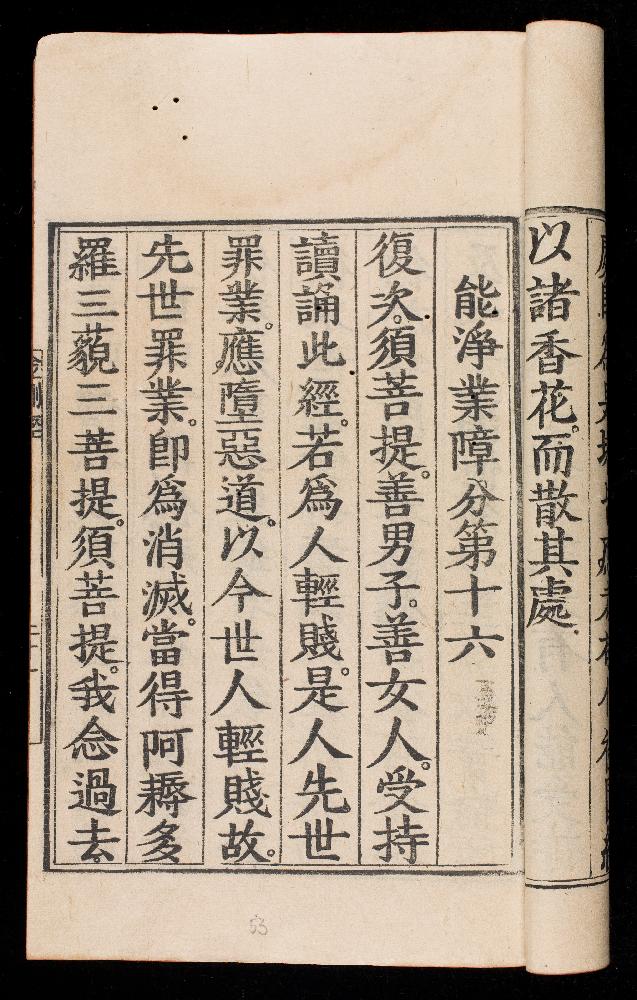 以諸香花。而散其處。
能淨業障分第十六
復次。須菩提。善男子。善女人。受持
讀誦此經。若為人輕賤。是人先世
罪業。應墮惡道。以今世人輕賤故。
先世罪業。即為消滅。當得阿耨多
羅三藐三菩提。須菩提。我念過去
53